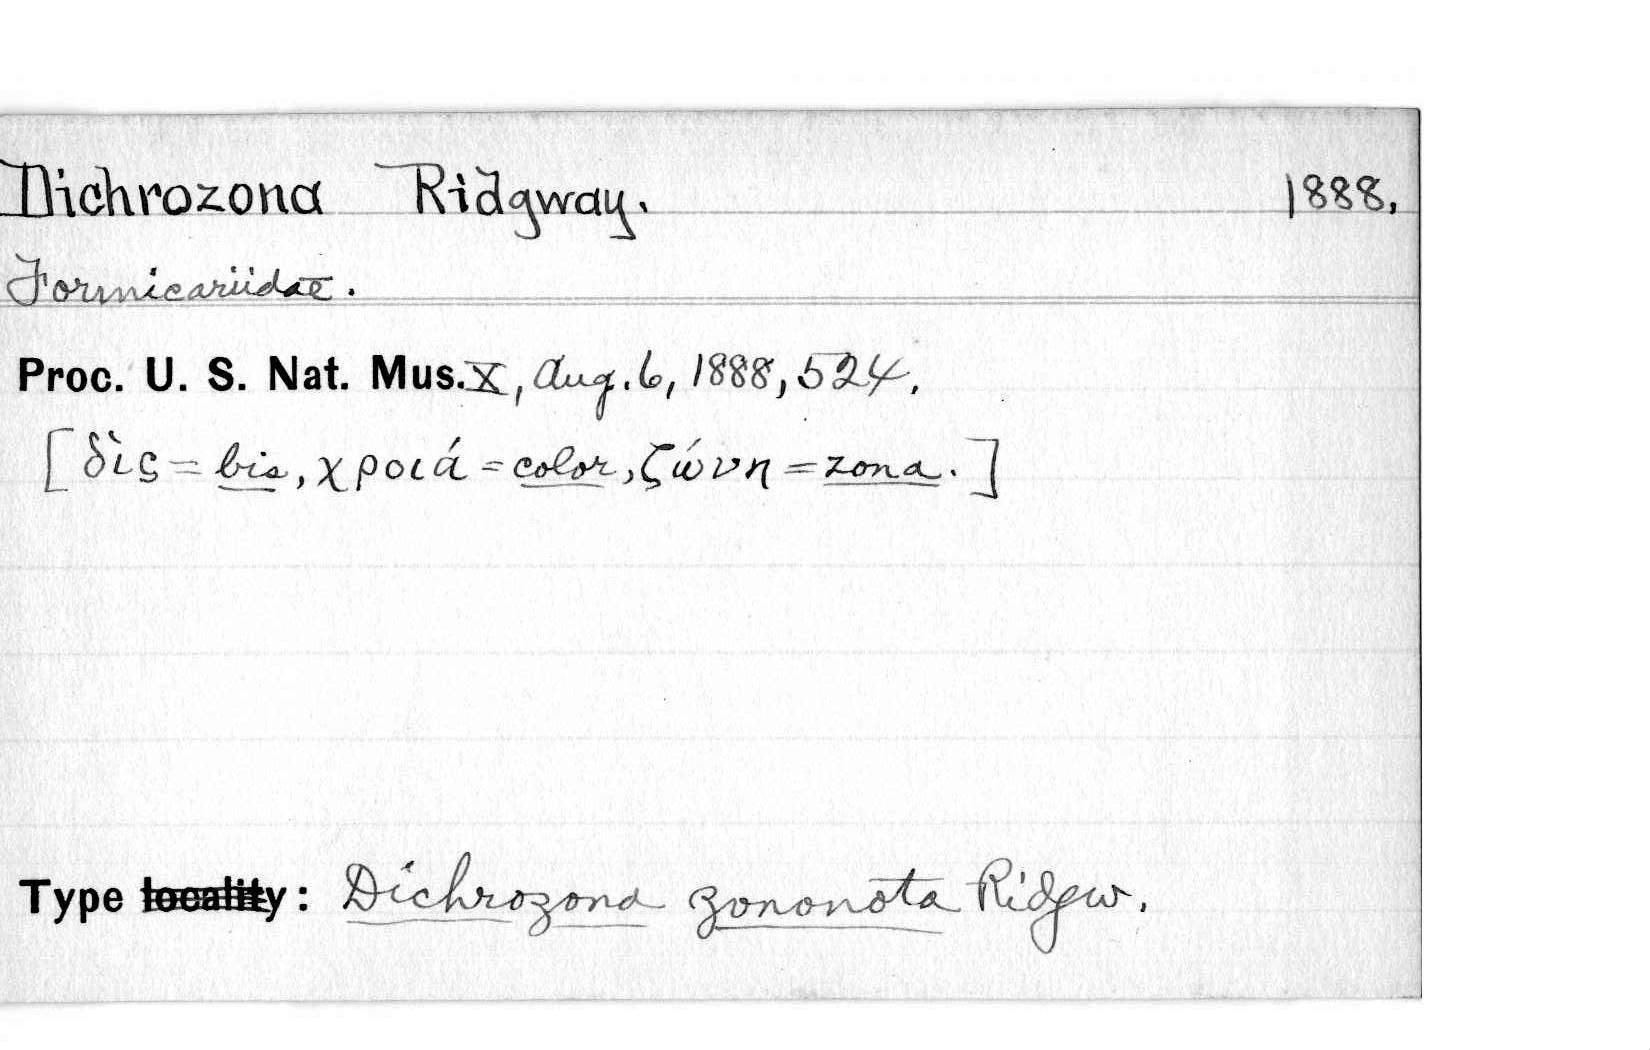 Dichrozona Ridgway. 1888.
Formicariidae.
Proc. U. S. Nat. Mus. X, Aug. 6, 1888, 524.
[δὶς = bis, χροιά = color, ζώνη = zona.]
Type locality: Dichrozona zononota Ridgw.